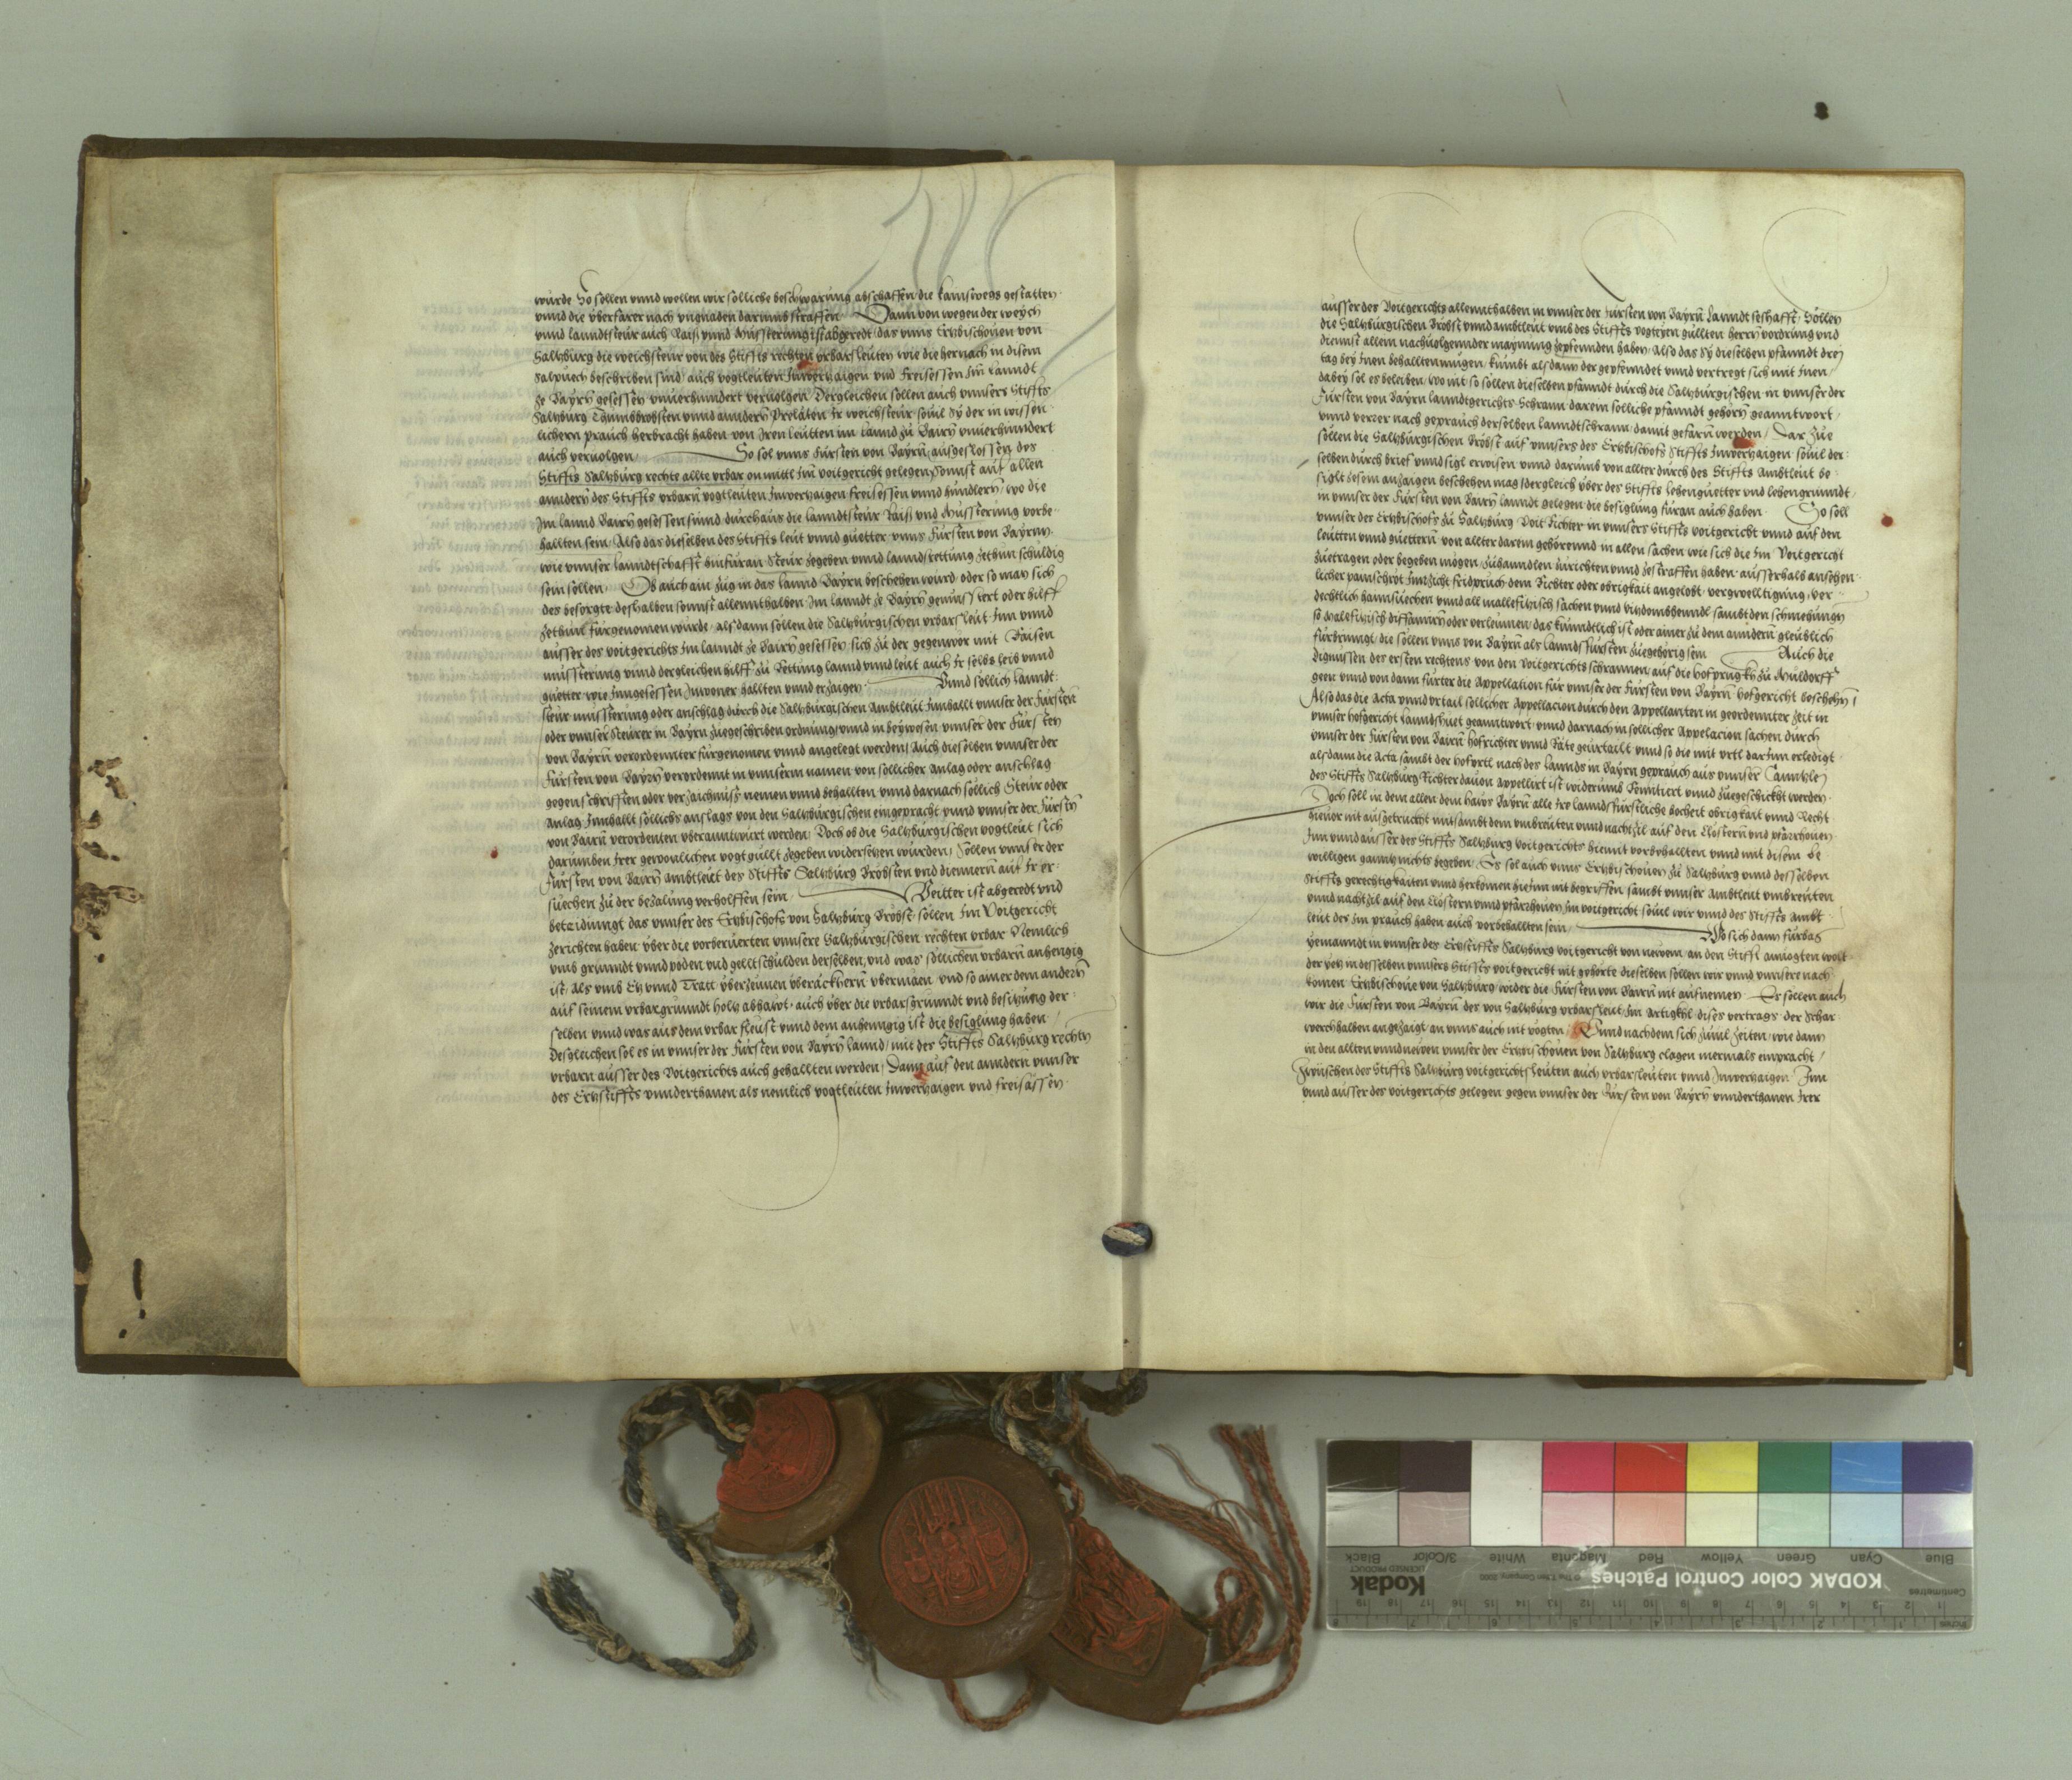 wurde So sollen vnnd wellen wir solliche beschwarung abschaffen die kainswegs gestatten
vnnd die vberfarer nach vngnaden darumb straffen Dann von wegen der weych
vnnd lanndtsteur auch Raiß vnnd Mussterung ist abgeredt das vnns Ertzbischouen von
Saltzburg die weichsteur von des Stiffts rechten vrbarsleuten wie die hernach in disem
Salpuech beschriben sind auch vogtleuten Inwertzaigen vnd freisessen Im Lanndt
ze Bayrn gesessen vnuerhindert veruolgen Dergleichen sollen auch vnnsers Stiffts
Saltzburg Thumbbrobsten vnnd anndern Prelaten Ir weichsteur souil Sy der in
lichem prauch herbracht haben von Iren leutten im Lannd zu Bairn vnuerhindert
auch veruolgen So sol vnns Fursten von Bayrn ausgeslossen des
Stiffts Saltzburg rechts allts vrbar on mittl Im voitgericht gelegen Sonnst auf allen
anndern des Stiffts vrbarn vogtleuten Inwertzaigen freisessen vnnd hindlern wo die
Im lannd Bairn gesessen sinnd durchaus die lanndtsteur Raiß vnd Mussterung vorbe
hallten sein Also das dieselben des Stiffts leut vnnd guetter vnns Fursten von Bayrnn
wie vnnser lanndtschafft hinfuran Steur zegeben vnnd lanndsrettung zethun schuldig
sein sollen Ob auch ain zug in das lannd Bayrn beschehen wurd oder so man sich
des besorgte deshalben sonnst allennthalben Im lanndt ze Bayrn gemusstert oder hilff
zethun furgenomen wurde alsdann sollen die Saltzburgischen vrbarsleut Inn vnnd
ausser des voitgerichts Im lanndt ze Bairn gesessen sich zu der gegenwor mit Raisen
mussterung vnnd dergleichen hilff zu Rettung lannd vnnd leut auch Ir selbs leib vnnd
guetter wie Inngesessen Inwoner hallten vnnd erzaigen Vnnd sollich lanndt
steur mussterung oder anschlag durch die Saltzburgischen Ambtleut Innhallt vnnser der Fursten
oder vnnser Steurer in Bayrn zuegeschriben ordnung vnnd in beywesen vnnser der Fursten
von Bayrn verordennter furgenomen vnnd angelegt werden Auch dieselben vnnser der
Fursten von Bayrn verordennt in vnnserm namen von sollicher Anlag oder anschlag
gegenschrifften oder verzaichnuss nemen vnnd behallten vnnd darnach sollich Steur oder
Anlag Innhallt sollichs anslags von den Saltzburgischen eingepracht vnnd vnnser der Fursten
von Bairn verordenten vberanntwurt werden Doch ob die Saltzburgischen vogtleut sich
darumben Irer gewonlichen vogtgullt zegeben widersetzen wurden Sollen vnnser der
Fursten von Bairn ambtleut des Stiffts Saltzburg Brobsten vnd diennern auf Ir er
suechen zu der bezalung verholffen sein Weitter ist abgeredt vnd
betaidingt das vnnser des Ertzbischofs von Saltzburg Brobst sollen Im Voitgericht
zerichten haben vber die vorberuerten vnnsere Saltzburgischen rechten vrbar Nemlich
vmb grunndt vnnd poden vnd gelltschulden derselben vnd was sollichen vrbarn anhengig
ist als vmb Etz vnnd Tratt vberzeunen vberackhern vbermaen vnd so ainer dem andern
auf seinem vrbargrunndt holtz abhawt auch vber die vrbarsgrunndt vnd besitzung der
selben vnnd was aus dem vrbar fleust vnnd dem anhenngig ist die besiglung haben
Desgleichen sol es in vnnser der Fursten von Bayrn lannd mit des Stiffts Saltzburg rechten
vrbarn ausser des Voitgerichts auch gehallten werden Dann auf den anndern vnnser
des Ertzstiffts vnnderthanen als nemlich vogtleuten Inwertzaigen vnd freisassen
ausser des Voitgerichts allennthalben in vnnser der Fursten von Bayrn Lanndt seshafft Sollen
die Saltzburgischen Brobst vnnd ambtleut vmb des Stiffts vogteyen gullten herrn vordrung vnd
diennst allein nachuolgennder maynung zepfennden haben Also das Sy dieselben pfanndt drey
tag bey Inen behallten mugen kumbt alsdann der gepfenndet vnnd vertregt sich mit Inen
dabey sol es beleiben wo nit so sollen dieselben pfanndt durch die Saltzburgischen in vnnser der
Fursten von Bayrn lanndtgerichts Schrann darein solliche pfanndt gehorn geanntwort
vnnd verrer nach geprauch derselben lanndtschrann damit gefarn werden Dar Zue
sollen die Saltzburgischen Brobst auf vnnsers des Ertzbischofs Stiffts Inwertzaigen souil der
selben durch brief vnnd sigl erwisen vnnd darumb von allter durch des Stiffts Ambtleut be
siglt desem anzaigen beschehen mag dergleich vber des Stiffts lehenguetter vnd lehengrunndt
in vnnser der Fursten von Bairn lanndt gelegen die besiglung furan auch haben So soll
vnnser des Ertzbischofs zu Saltzburg Voit Richter in vnnsers Stiffts voitgericht vnnd auf den
leutten vnnd guettern von allter darein gehorennd in allen sachen wie sich die Im Voitgericht
zuetragen oder begeben mogen zuhanndlen zurichten vnnd zestraffen haben ausserhalb ansehen
licher painschrot Inntzicht fridpruch dem Richter oder obrigkait angelobt vergwelltigung ver
dechtlich haimsuechen vnnd all mallefitzisch sachen vnnd vitzdombhenndl sambt den schmehungen
so malefitzisch diffamirn oder verleumen das kunndtlich ist oder ainer zu dem anndern gleublich
furbrinngt die sollen vnns von Bayrn als Lanndsfursten zuegehorig sein Auch die
dignussen des ersten rechtens von den Voitgerichtsschrannen auf die hofprugkh zu Muldorff
geen vnnd von dann furter die Appellation fur vnnser der Fursten von Bayrn hofgericht beschehen
Also das die Acta vnnd vrtail sollicher Appellacion durch den Appellanten in geordennter zeit in
vnnser hofgericht Lanndshuet geanntwort vnnd darnach in sollicher Appelacion sachen durch
vnnser der Fursten von Bairn hofrichter vnnd Räte geurtailt vnnd so die mit vrtl darInn erledigt
alsdann die Acta sambt der hofvrtl nach des lannds in Bayrn geprauch aus vnnser Canntzley
des Stiffts Saltzburg Richter dauon appellirt ist widerumb Remittiert vnnd zuegeschickht werden
Doch soll in dem allen dem haws Bayrn alle Ire lanndsfurstliche hocheit obrigkait vnnd Recht
hieuor nit ausgetruckt mitsambt dem vmbreuten vnnd nachtzil auf den Clostern vnd pfarrhouen
Inn vnnd ausser des Stiffts Saltzburg voitgerichts hiemit vorbehallten vnnd mit disem be
willigen ganntz nichts begeben Es sol auch vnns Ertzbischouen zu Saltzburg vnnd desselben
Stiffts gerechtigkaiten vnnd herkomen hieInn nit begriffen sambt vnnser Ambtleut vmbreuten
vnnd nachtzil auf den Clostern vnnd pfarrhouen Im voitgericht souil wir vnnd des Stiffts ambt
leut des Im prauch haben auch vorbehallten sein Wo sich dann furbas
yemanndt in vnnser des Ertzstiffts Saltzburg voitgericht von newem an den Stifft anuogten wolt
der yetz in desselben vnnsers Stiffts voitgericht nit gehorte dieselben sollen wir vnnd vnnsere nach
komen Ertzbischoue von Saltzburg wider die Fursten von Bairn nit aufnemen Es sollen auch
wir die Fursten von Bayrn des von Saltzburg vrbarsleut Im Artigkhl dises vertrags der Schar
werch halben angezaigt an vnns auch nit vogten Vnnd nachdem sich zuuil Zeiten wie dann
in den allten vnnd neuen vnnser der Ertzbischouen von Saltzburg clagen mermals einpracht
Zwischen des Stiffts Saltzburg voitgerichtsleuten auch vrbarsleuten vnnd Inwertzaigen Inn
vnnd ausser des voitgerichts gelegen gegen vnnser der Fursten von Bayrn vnnderthanen Irer
KODAK Color Control Patches
Kodak
LICENSED PRODUCT
Blue Cyan Green Yellow Red Magenta White 3/Color Black
Centimetres
Inches